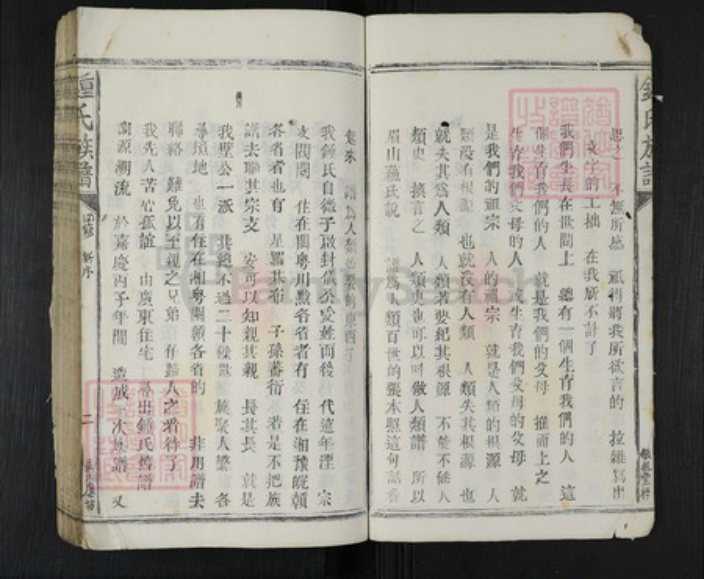 鍾氏族譜
思之 不無所感 祇得將我所欲言的 拉雜寫出
文字的工拙 在我所不計了
我們生長在世間上 總有一個生育我們的人 這
個生育我們的人 就是我們的父母 推而上之
生育我們父母的人 或生育我們父母的父母 就
是我們的祖宗 人的祖宗 就是人類的根源 人
類沒有根源 也就沒有人類 人類失其根源 也
就失其為人類 人類若要紀其根源 不能不他人
類史 換言之 人類史也可以叫做人類譜 所以
眉山蘇氏說 譜為人類百世的張本照這句話看
起來 譜為人類的東西了
我鍾氏自微子啟封 受姓而後 代遠年湮 宗
支閥閱 住在閩粵川黔各省者有 住在湘豫皖贛
各省者也有 星羅其布 子孫蕃衍 若是不把族
譜去聯其宗支 安可以知親其親 長其長 就是
我聖公一派 其總不過二十餘 族聚人繁 各
尋墳地 也有住在湘粵閩贛各省的 非用譜去
聯絡 難免以至親之兄弟 作路人之看待了
我先人苦心孤詣 由廣東住宅 尋出鍾氏舊譜
溯源溯流 於嘉慶丙子年間 造成一次族譜 又
鍾氏族譜
新序
二